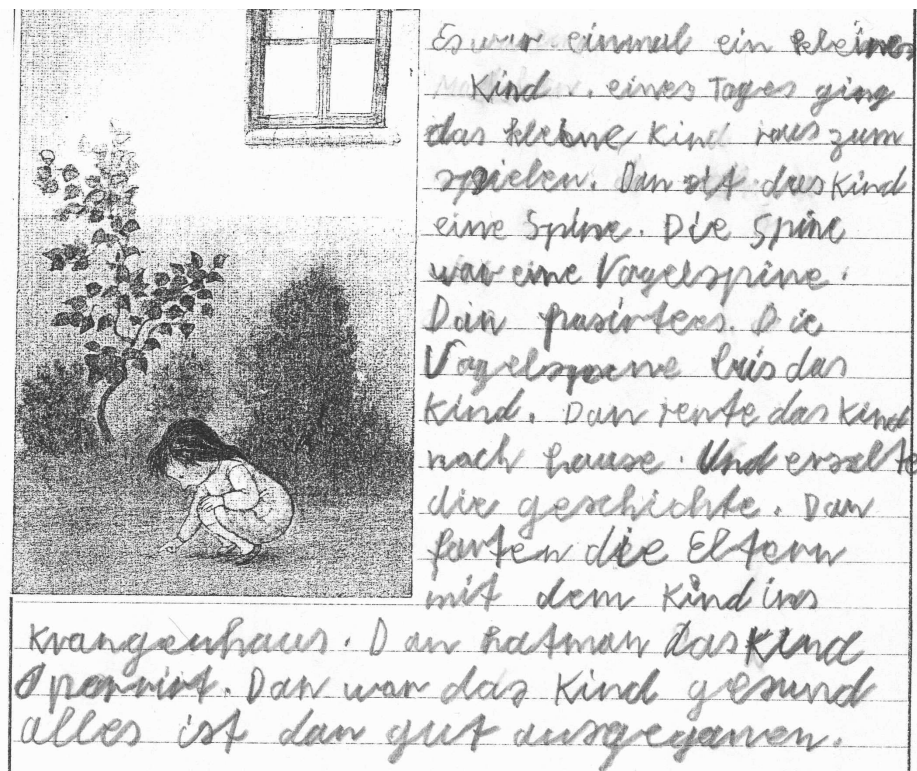 Es war einmal ein kleines
Kind. eines Tages ging
das kleine Kind raus zum
spielen. Dan sit das Kind
eine Spine. Die Spine
war eine Vogelspine.
Dan pasirtees. Die
Vogelspene bis das
Kind. Dan rente das Kind
nach hause. Und erzelte
die geschichte. Dan
farten die Eltern
mit dem Kind ins
Krangenhaus. Dan hatman das Kind
Operrirt. Dan war das Kind gesund
alles ist dan gut ausgeganen.